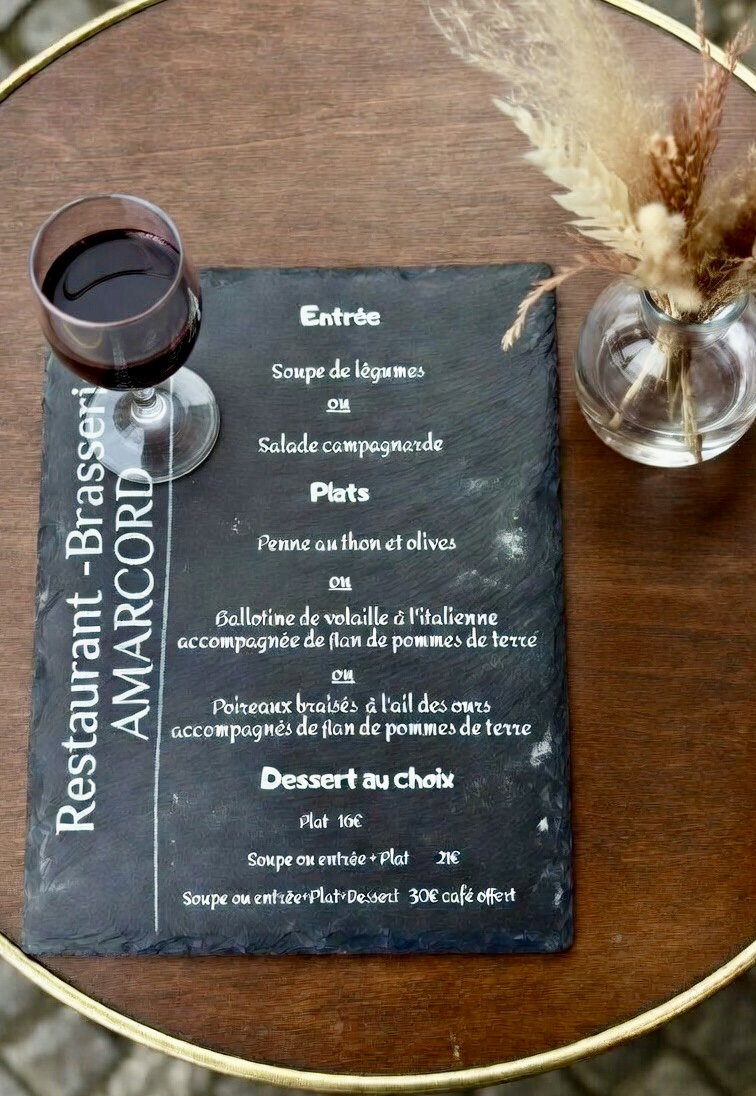 Restaurant - Brasseri
AMARCORD
Entrée
Soupe de légumes
ou
Salade campagnarde
Plats
Penne au thon et olives
ou
Ballotine de volaille à l'italienne
accompagnée de flan de pommes de terré
ou
Poireaux braisés à l'ail des ours
accompagnés de flan de pommes de terre
Dessert au choix
Plat 16€
Soupe ou entrée + Plat 21€
Soupe ou entrée+Plat+Dessert 30€ café offert